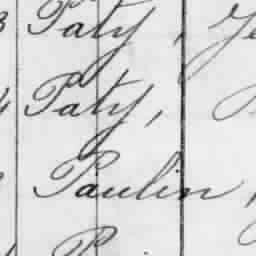 Paty,
Paty,
Paulin,